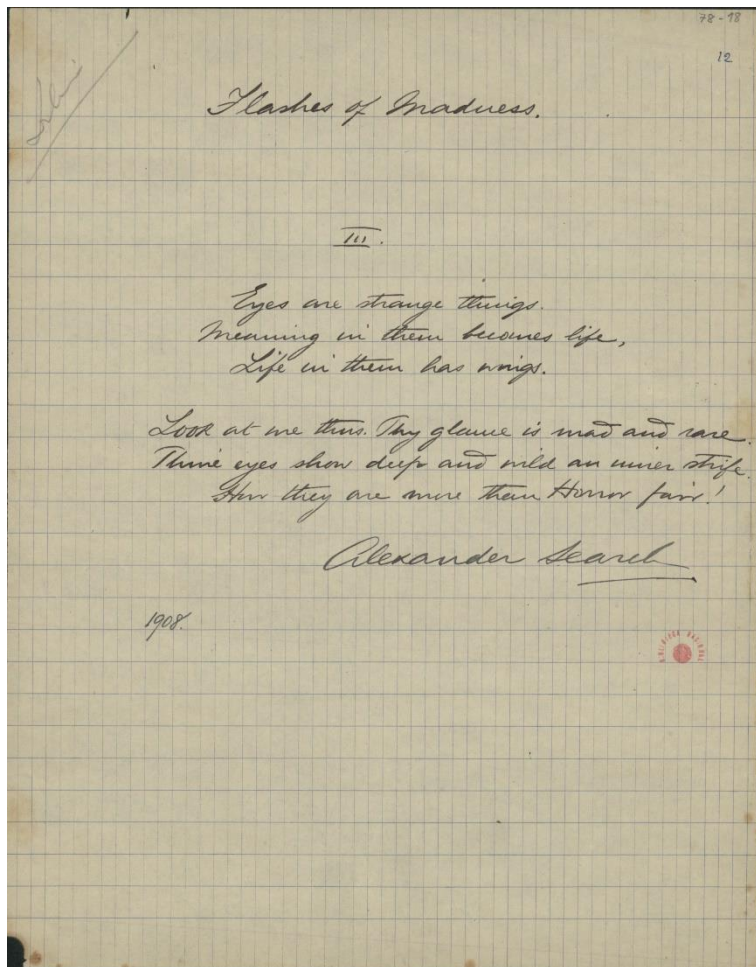 78-98
12
Flashes of Madness.
III.
Eyes are strange things.
Meaning in them becomes life,
Life in them has wings.
Look at me thus. Thy glance is mad and rare.
Thine eyes show deep and wild an inner strife.
How they are more than Horror fair!
Alexander Search
1908.
BIBLIOTECA NACIONAL